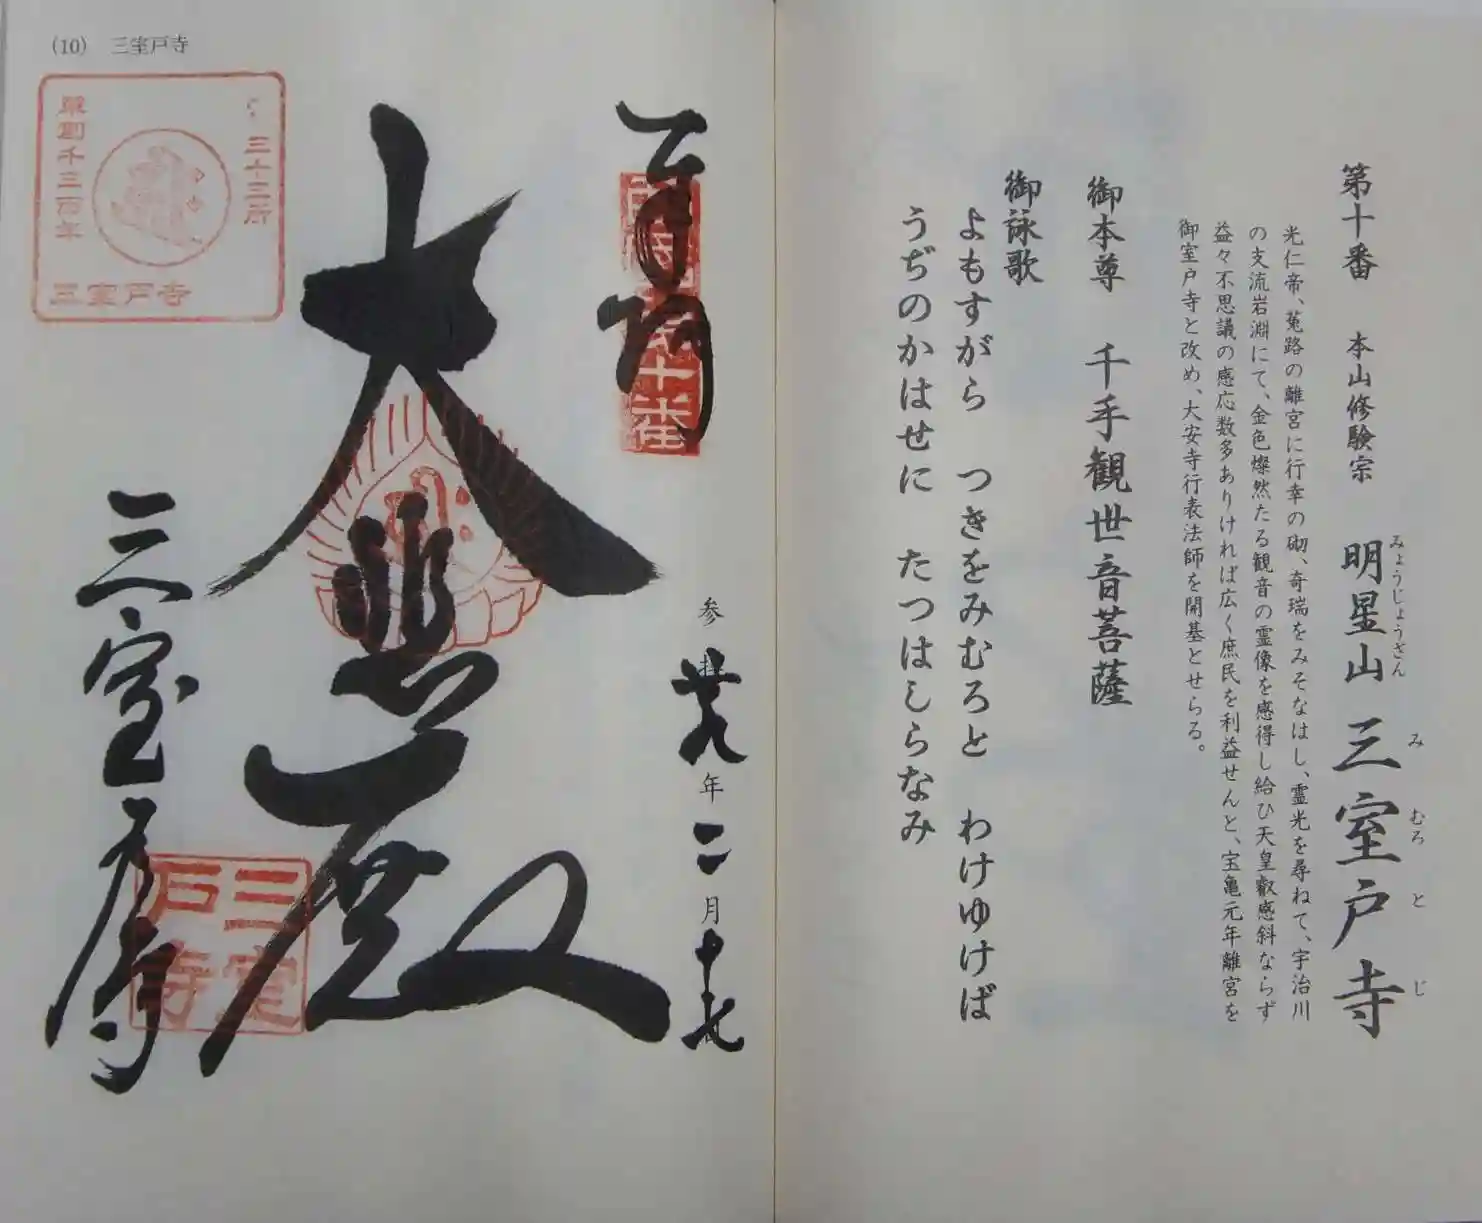 第十番 本山修験宗 明星山 三室戸寺
みょうじょうざん み むろ と じ
光仁帝、菟路の離宮に行幸の砌、奇瑞をみそなはし、霊光を尋ねて、宇治川
の支流岩淵にて、金色燦然たる観音の霊像を感得し給ひ天皇叡感斜ならず
益々不思議の感応数多ありければ広く庶民を利益せんと、宝亀元年離宮を
御室戸寺と改め、大安寺行表法師を開基とせらる。
御本尊 千手観世音菩薩
御詠歌
よもすがら つきをみむろと わけゆけば
うぢのかはせに たつはしらなみ
(10) 三室戸寺
奉拝
西国第十番
参拝 廿九年 二月 十七
大悲殿
三室戸寺
三室戸寺
三十三所
草創千三百年
三室戸寺